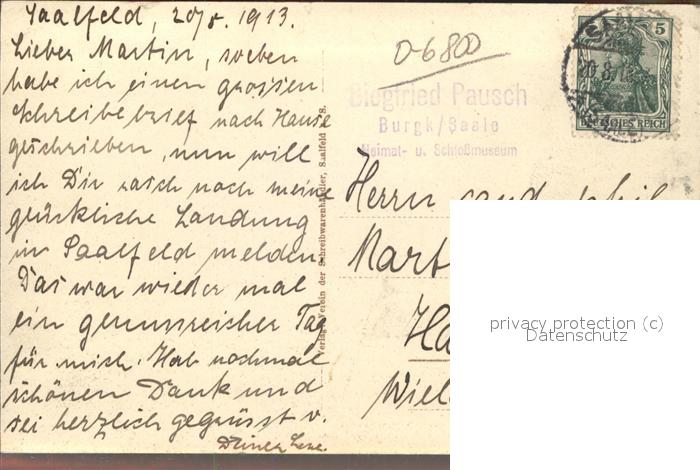 Saalfeld, 20/8. 1913.
Lieber Martin, soeben
habe ich einen grossen
Schreibebrief nach Hause
geschrieben, nun will
ich Dir rasch noch meine
glückliche Landung
in Saalfeld melden.
Das war wieder mal
ein genussreicher Tag
für mich. Hab nochmal
schönen Dank und
sei herzlich gegrüsst v.
Deiner
Verlag: Verein der Schreibwarenhändler, Saalfeld a. S.
0-6800
Siegfried Pausch
Burgk/Saale
Heimat- u. Schloßmuseum
5
DEUTSCHES REICH
Herrn cand. phil.
Mart
Ha
Wiel
privacy protection (c)
Datenschutz